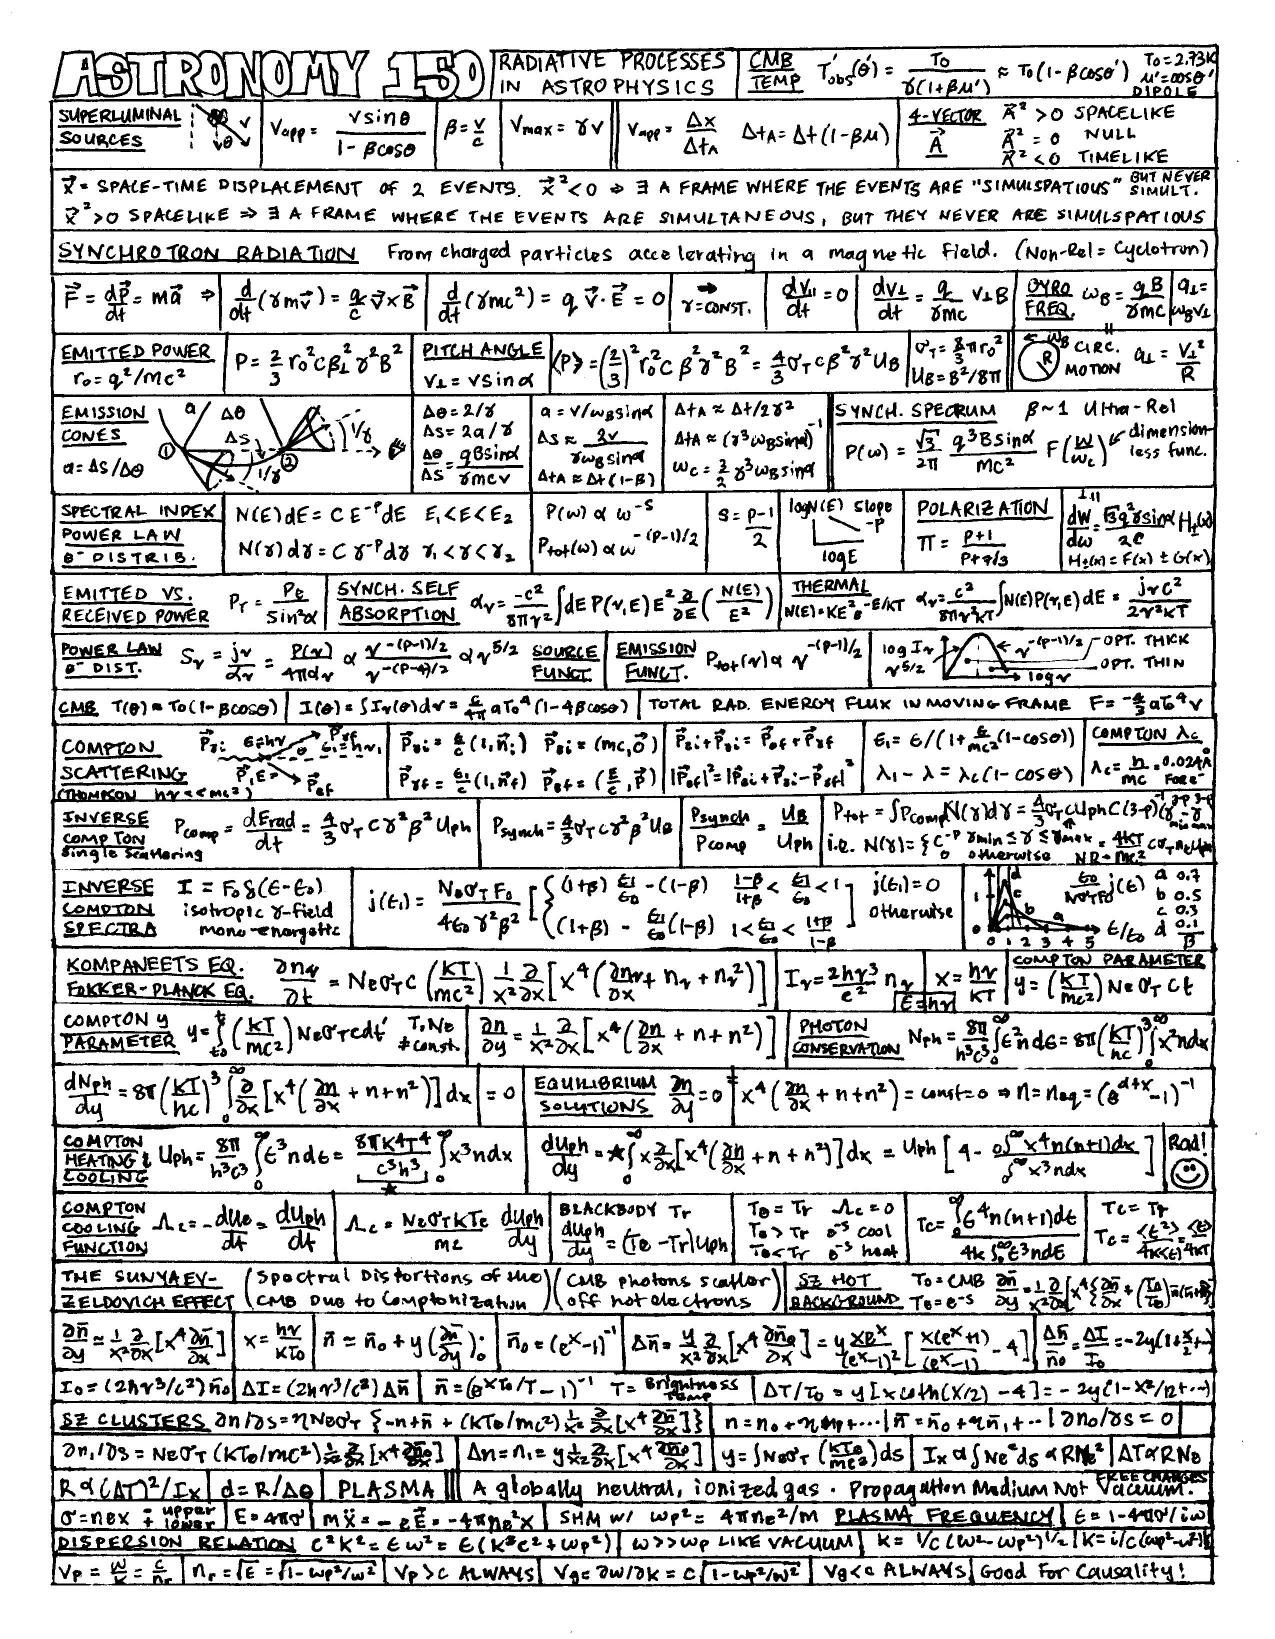 ASTRONOMY 150 RADIATIVE PROCESSES IN ASTROPHYSICS CMB TEMP T'obs(θ') = To / γ(1+βμ') ≈ To(1-βcosθ') To=2.73K μ'=cosθ' DIPOLE
SUPERLUMINAL SOURCES v θ Vapp = vsinθ / 1-βcosθ β=v/c Vmax = γv Vapp = Δx/ΔtA ΔtA=Δt(1-βμ) 4-VECTOR A⃗ A⃗²>0 SPACELIKE A⃗²=0 NULL A⃗²<0 TIMELIKE
x⃗ = SPACE-TIME DISPLACEMENT OF 2 EVENTS. x⃗²<0 ⇒ ∃ A FRAME WHERE THE EVENTS ARE "SIMULSPATIOUS" BUT NEVER SIMULT.
x⃗²>0 SPACELIKE ⇒ ∃ A FRAME WHERE THE EVENTS ARE SIMULTANEOUS, BUT THEY NEVER ARE SIMULSPATIOUS
SYNCHROTRON RADIATION From charged particles accelerating in a magnetic field. (Non-Rel = Cyclotron)
F⃗ = dp⃗/dt = ma⃗ ⇒ d/dt(γmv⃗) = q/c v⃗×B⃗ d/dt(γmc²) = q v⃗·E⃗ = 0 ➡ γ=CONST. dv∥/dt=0 dv⊥/dt = q/γmc v⊥B GYRO FREQ. ωB = qB/γmc a⊥=ωBv⊥
EMITTED POWER ro=q²/mc² P = 2/3 ro²cβ⊥²γ²B² PITCH ANGLE v⊥ = vsinα ⟨P⟩ = (2/3)²ro²cβ²γ²B² = 4/3 σT cβ²γ²UB σT=8/3πro² UB=B²/8π ωB R CIRC. MOTION a⊥ = v⊥²/R
EMISSION CONES a=Δs/Δθ a Δθ Δs 1/γ 1/γ ① ② Δθ=2/γ Δs=2a/γ Δθ/Δs = qBsinα/γmcv a=v/ωBsinα Δs≈2v/γωBsinα ΔtA≈Δt(1-β) ΔtA≈Δt/2γ² ΔtA≈(γ³ωBsinα)⁻¹ ωc=3/2γ³ωBsinα SYNCH. SPECRUM β~1 Ultra-Rel P(ω) = √3/2π q³Bsinα/mc² F(ω/ωc) dimension-less func.
SPECTRAL INDEX POWER LAW e⁻ DISTRIB. N(E)dE = C E⁻ᵖdE E₁<E<E₂ N(γ)dγ = C γ⁻ᵖdγ γ₁<γ<γ₂ P(ω)∝ω⁻ˢ Ptot(ω)∝ω^-(p-1)/2 s=p-1/2 logN(E) Slope -p logE POLARIZATION Π = p+1/p+7/3 dW/dω = √3q²γsinα/2c H±(x)=F(x)±G(x)
EMITTED VS. RECEIVED POWER Pr = Pe/sin²α SYNCH. SELF ABSORPTION αν = -c²/8πν² ∫dE P(ν,E)E² ∂/∂E(N(E)/E²) THERMAL N(E)=KE²e^-E/kT αν=c²/8πν²kT ∫N(E)P(ν,E)dE = jνc²/2ν²kT
POWER LAW e⁻ DIST. Sν = jν/αν = P(ν)/4παν ∝ ν^-(p-1)/2 / ν^-(p+4)/2 ∝ ν^5/2 SOURCE FUNCT. EMISSION FUNCT. Ptot(ν)∝ν^-(p-1)/2 log Iν ν^5/2 ν^-(p-1)/2 OPT. THICK OPT. THIN logν
CMB T(θ)=To(1-βcosθ) I(θ)=∫Iν(θ)dν=c/4π aTo⁴(1-4βcosθ) TOTAL RAD. ENERGY FLUX IN MOVING FRAME F=-4/3aTo⁴v
COMPTON SCATTERING (THOMPSON hν<<mc²) P⃗γi ϵ=hν P⃗γf θ ϵ₁=hν₁ P⃗,E P⃗ef P⃗γi=ϵ/c(1,n⃗i) P⃗ei=(mc,0⃗) P⃗γf=ϵ₁/c(1,n⃗f) P⃗ef=(E/c,P⃗) P⃗ei+P⃗γi=P⃗ef+P⃗γf |P⃗ef|²=|P⃗ei+P⃗γi-P⃗γf|² ϵ₁=ϵ/(1+ϵ/mc²(1-cosθ)) λ₁-λ=λc(1-cosθ) COMPTON λc λc=h/mc=0.024Å For e⁻
INVERSE COMPTON Single Scattering Pcomp = dErad/dt = 4/3σTcγ²β²Uph Psynch=4/3σTcγ²β²UB Psynch/Pcomp = UB/Uph Ptot=∫PcompN(γ)dγ=4/3σTcUphC(3-p)⁻¹ i.e. N(γ)={ γmin≤γ≤γmax otherwise NR = 4kT/mc²
INVERSE COMPTON SPECTRA I = Foδ(ϵ-ϵo) isotropic γ-field mono-energetic j(ϵ₁) = NoσTFo/4ϵoγ²β² [ (1+β)ϵ₁/ϵo-(1-β) 1-β/1+β<ϵ₁/ϵo<1 (1+β)-ϵ₁/ϵo(1-β) 1<ϵ₁/ϵo<1+β/1-β ] j(ϵ₁)=0 otherwise d c b a 1 0 1 2 3 4 5 ϵ/ϵo ϵo/NσTFo j(ϵ) a 0.7 b 0.5 c 0.3 d 0.1 β
KOMPANEETS EQ. FOKKER-PLANCK EQ. ∂nν/∂t = NeσTc(kT/mc²)1/x²∂/∂x[x⁴(∂nν/∂x+nν+nν²)] Iν=2hν³/c² nν E=hν x=hν/kT COMPTON PARAMETER y=(kT/mc²)NeσTct
COMPTON y PARAMETER y=∫(kT/mc²)NeσTcdt' T,Ne ≠const. ∂n/∂y=1/x²∂/∂x[x⁴(∂n/∂x+n+n²)] PHOTON CONSERVATION Nph=8π/h³c³∫ϵ²ndϵ=8π(kT/hc)³∫x²ndx
dNph/dy=8π(kT/hc)³∫∂/∂x[x⁴(∂n/∂x+n+n²)]dx=0 EQUILIBRIUM SOLUTIONS ∂n/∂y=0 x⁴(∂n/∂x+n+n²)=const=0 ⇒ n=neq=(e^α+x-1)⁻¹
COMPTON HEATING & COOLING Uph=8π/h³c³∫ϵ³ndϵ=8πk⁴T⁴/c³h³∫x³ndx ★ dUph/dy=★∫x∂/∂x[x⁴(∂n/∂x+n+n²)]dx=Uph[4-∫x⁴n(n+1)dx/∫x³ndx] Rad!
COMPTON COOLING FUNCTION Λc=-dUe/dt=dUph/dt Λc=NeσTkTe/mc dUph/dy BLACKBODY Tr dUph/dy=(Te-Tr)Uph Te=Tr Λc=0 Te>Tr e⁻s cool Te<Tr e⁻s heat Tc=∫ϵ⁴n(n+1)dϵ/4k∫ϵ³ndϵ Tc=Tr Tc=⟨ϵ²⟩/4k⟨ϵ⟩
THE SUNYAEV-ZELDOVICH EFFECT (Spectral Distortions of the CMB Due to Comptonization) (CMB photons scatter off hot electrons) SZ HOT BACKGROUND To=CMB Te=e⁻s
∂n̄/∂y≈1/x²∂/∂x[x⁴∂n̄/∂x] x=hν/kTo n̄=n̄o+y(∂n̄/∂y)o n̄o=(eˣ-1)⁻¹ Δn̄=y/x²∂/∂x[x⁴∂n̄o/∂x]=y xeˣ/(eˣ-1)²[x(eˣ+1)/(eˣ-1)-4] Δn̄/n̄o=ΔI/Io=-2y(1+x/2+...)
Io=(2hν³/c²)n̄o ΔI=(2hν³/c²)Δn̄ n̄=(e^xTo/T-1)⁻¹ T=Brightness Temp ΔT/To=y[xcoth(x/2)-4]=-2y(1-x²/12+...)
SZ CLUSTERS ∂n/∂s=ηNeσT{-n+n̄+(kTe/mc²)1/x²∂/∂x[x⁴∂n̄/∂x]} n=no+ηn₁+... n̄=n̄o+ηn̄₁+... ∂no/∂s=0
∂n₁/∂s=NeσT(kTe/mc²)1/x²∂/∂x[x⁴∂n̄o/∂x] Δn=n₁=y1/x²∂/∂x[x⁴∂n̄o/∂x] y=∫NeσT(kTe/mc²)ds Ix∝∫Ne²ds∝RNe² ΔT∝RNe
R∝(ΔT)²/Ix d=R/Δθ PLASMA A globally neutral, ionized gas. Propagation Medium Not Vacuum. FREE CHARGES
σ=nex + upper - lower E=4πσ mẍ=-eE⃗=-4πne²x SHM w/ ωp²=4πne²/m PLASMA FREQUENCY ϵ=1-4πσ/iω
DISPERSION RELATION c²k²=ϵω²=ϵ(k²c²+ωp²) ω>>ωp LIKE VACUUM k=1/c(ω²-ωp²)^1/2 k=i/c(ωp²-ω²)½
Vp=ω/k=c/nr nr=√ϵ=√1-ωp²/ω² Vp>c ALWAYS Vg=∂ω/∂k=c√1-ωp²/ω² Vg<c ALWAYS Good For Causality!